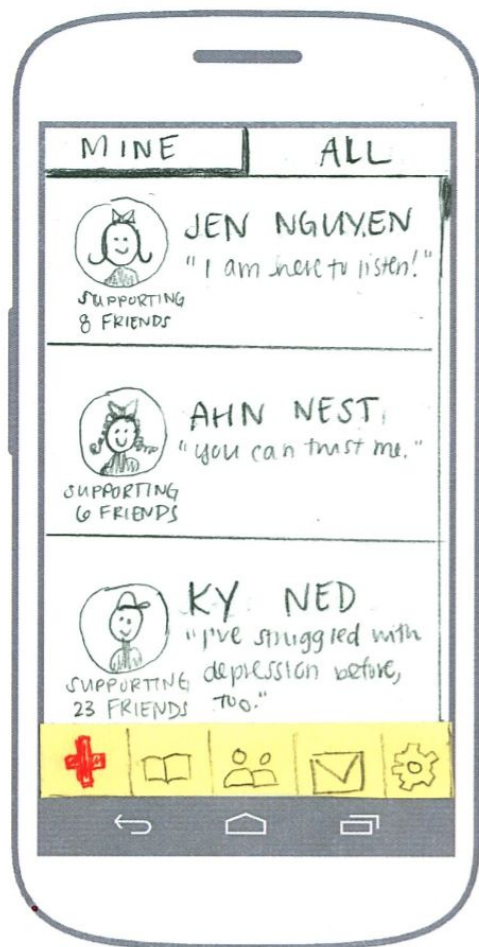 MINE
ALL
JEN NGUYEN
"I am here to listen!"
SUPPORTING
8 FRIENDS
AHN NEST
"you can trust me."
SUPPORTING
6 FRIENDS
KY NED
"I've struggled with
depression before,
too."
SUPPORTING
23 FRIENDS